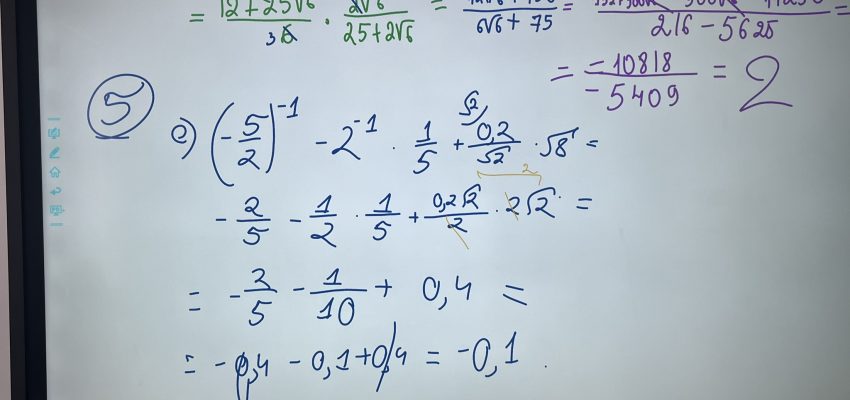 = 12+25√6 / 3 6 · 2√6 / 25+2√6 = / 6√6+75 = / 216-5625 =
= -10818 / -5409 = 2
5
e) (-5/2)^-1 - 2^-1 · 1/5 + √2) 0,2/√2 · √8 =
-2/5 - 1/2 · 1/5 + 0,2√2/2 · 2√2 = 2
= -2/5 - 1/10 + 0,4 =
= -0,4 - 0,1+0,4 = -0,1.